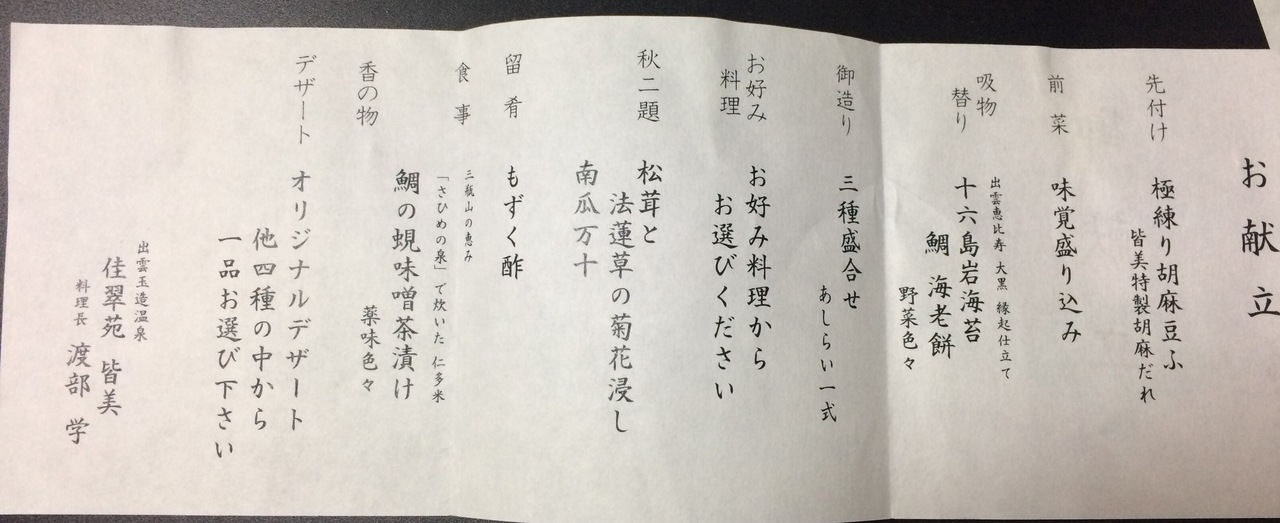 お献立
先付け
極練り胡麻豆ふ
皆美特製胡麻だれ
前菜
味覚盛り込み
吸物
替り
出雲恵比寿 大黒 縁起仕立て
十六島岩海苔
鯛 海老餅
野菜色々
御造り
三種盛合せ
あしらい一式
お好み
料理
お好み料理から
お選びください
秋二題
松茸と
法蓮草の菊花浸し
南瓜万十
留肴
もずく酢
食事
三瓶山の恵み
「さひめの泉」で炊いた 仁多米
鯛の蜆味噌茶漬け
薬味色々
香の物
デザート
オリジナルデザート
他四種の中から
一品お選び下さい
出雲玉造温泉
佳翠苑 皆美
料理長 渡部 学